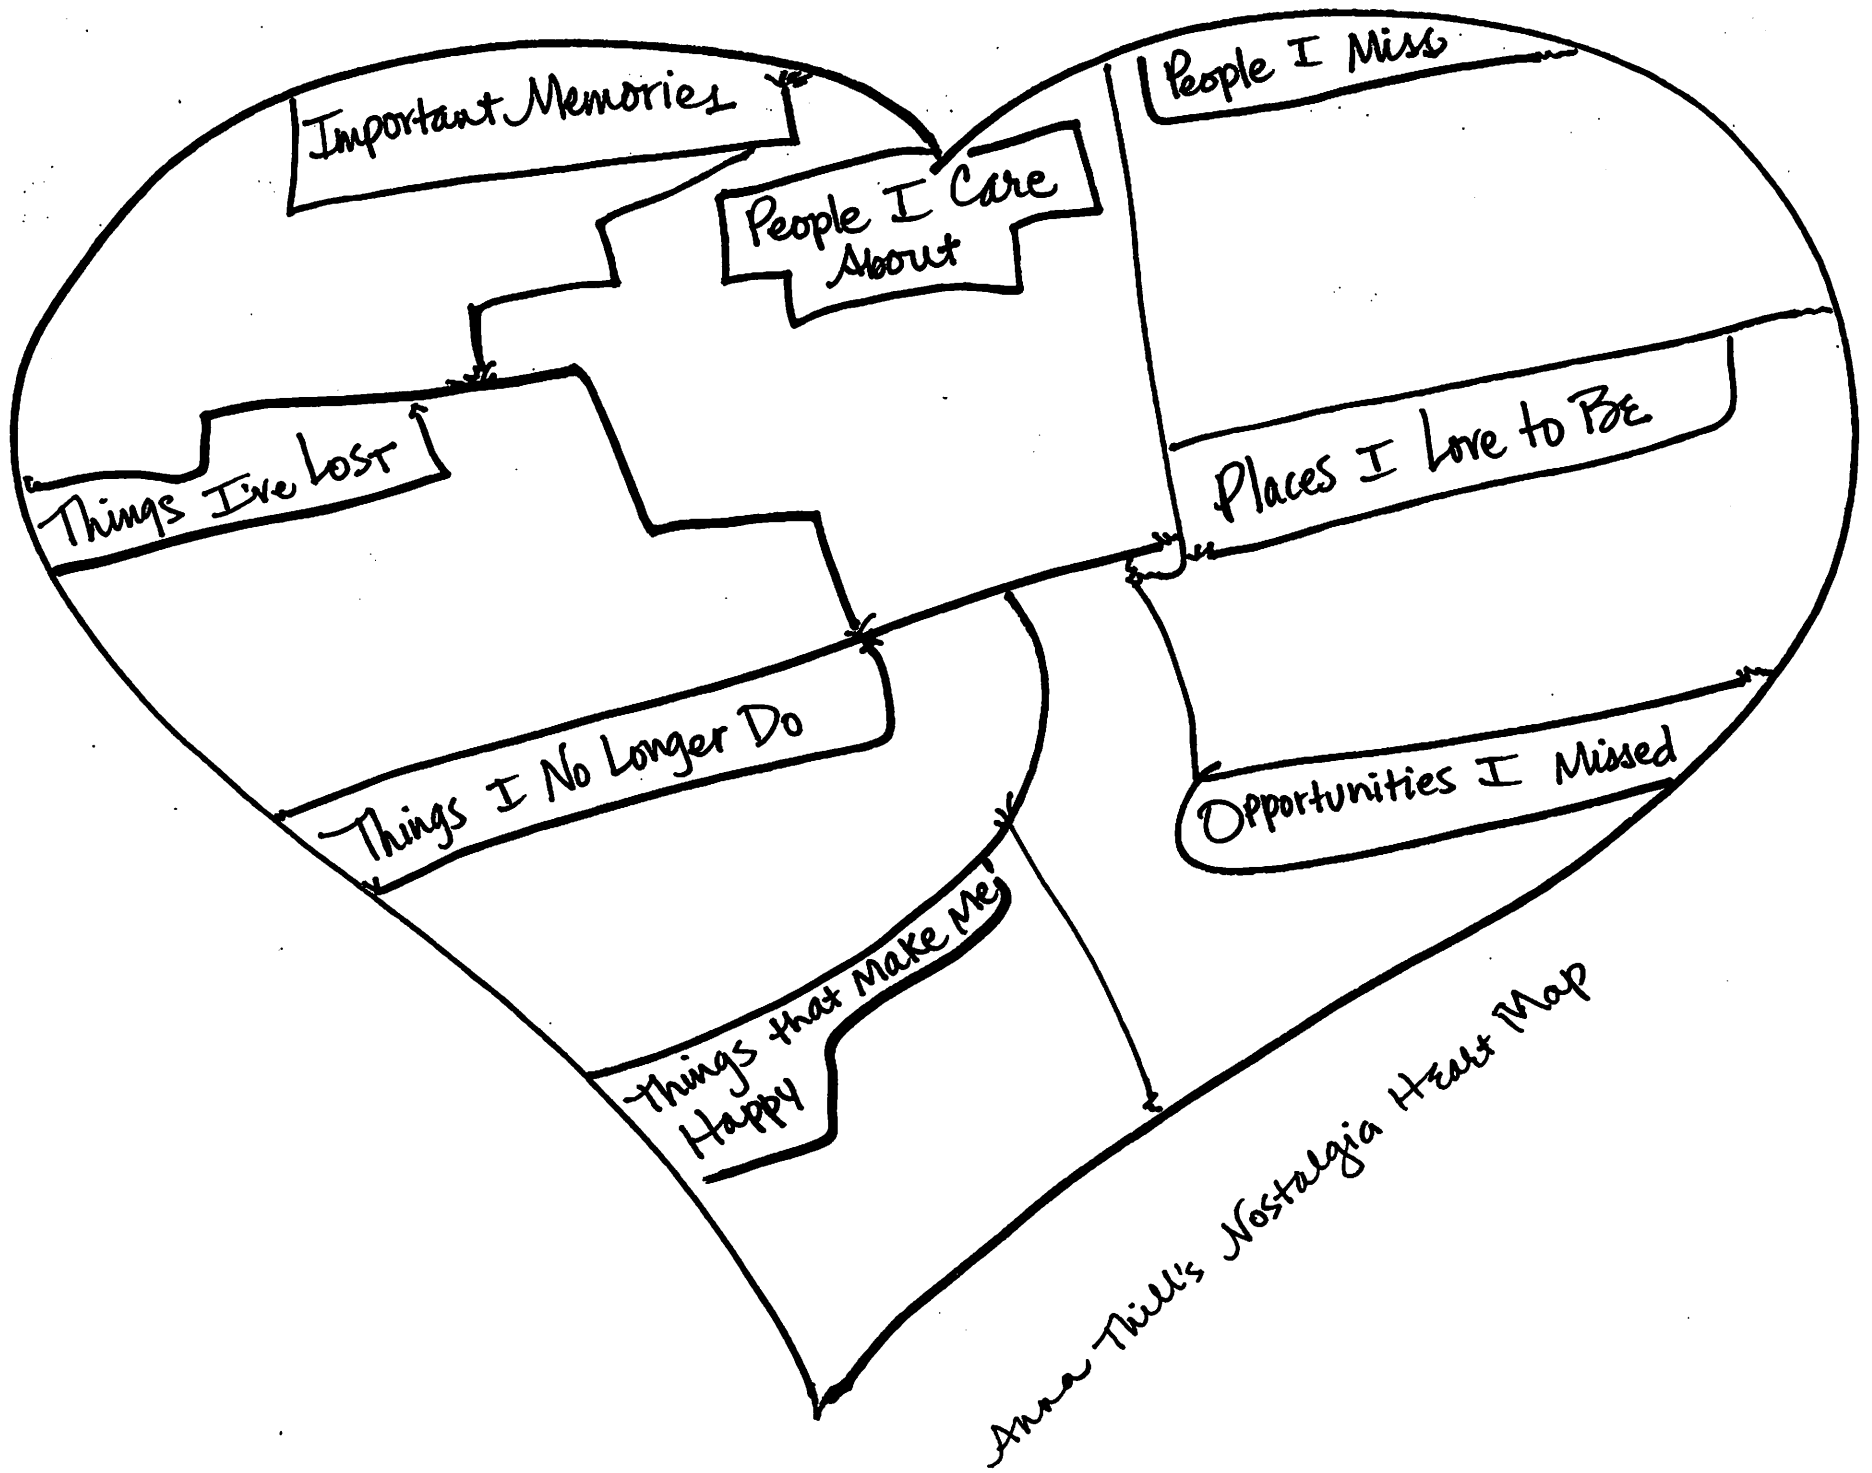 Important Memories
People I Miss
People I Care
About
Things I've Lost
Places I Love to Be
Things I No Longer Do
Opportunities I Missed
Things that Make Me
Happy
Anna Thill's Nostalgia Heart Map